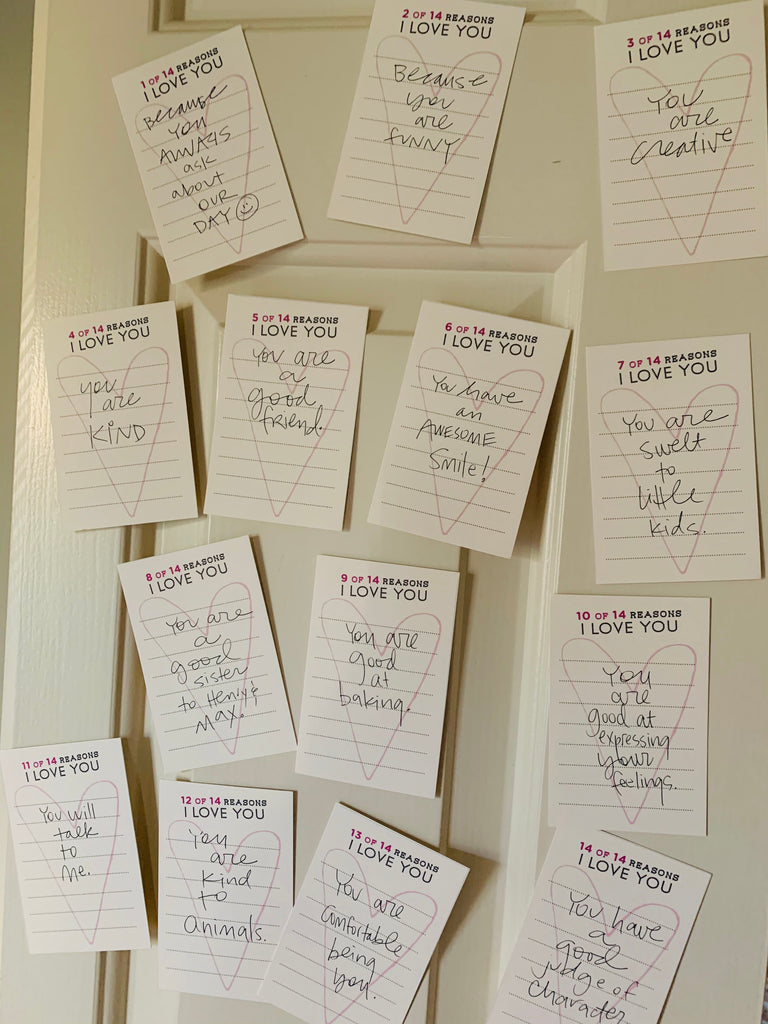 1 OF 14 REASONS
I LOVE YOU
Because
you
ALWAYS
ask
about
OUR
DAY
2 OF 14 REASONS
I LOVE YOU
Because
you
are
funny
3 OF 14 REASONS
I LOVE YOU
You
are
creative
4 OF 14 REASONS
I LOVE YOU
you
are
KIND
5 OF 14 REASONS
I LOVE YOU
You are
a
good
friend.
6 OF 14 REASONS
I LOVE YOU
You have
an
AWESOME
Smile!
7 OF 14 REASONS
I LOVE YOU
You are
sweet
to
little
kids.
8 OF 14 REASONS
I LOVE YOU
You are
a
good
sister
to Henry &
Max.
9 OF 14 REASONS
I LOVE YOU
You are
good
at
baking.
10 OF 14 REASONS
I LOVE YOU
You
are
good at
expressing
your
feelings.
11 OF 14 REASONS
I LOVE YOU
You will
talk
to
me.
12 OF 14 REASONS
I LOVE YOU
You
are
kind
to
animals.
13 OF 14 REASONS
I LOVE YOU
You are
comfortable
being
you.
14 OF 14 REASONS
I LOVE YOU
You have
a
good
judge of
character